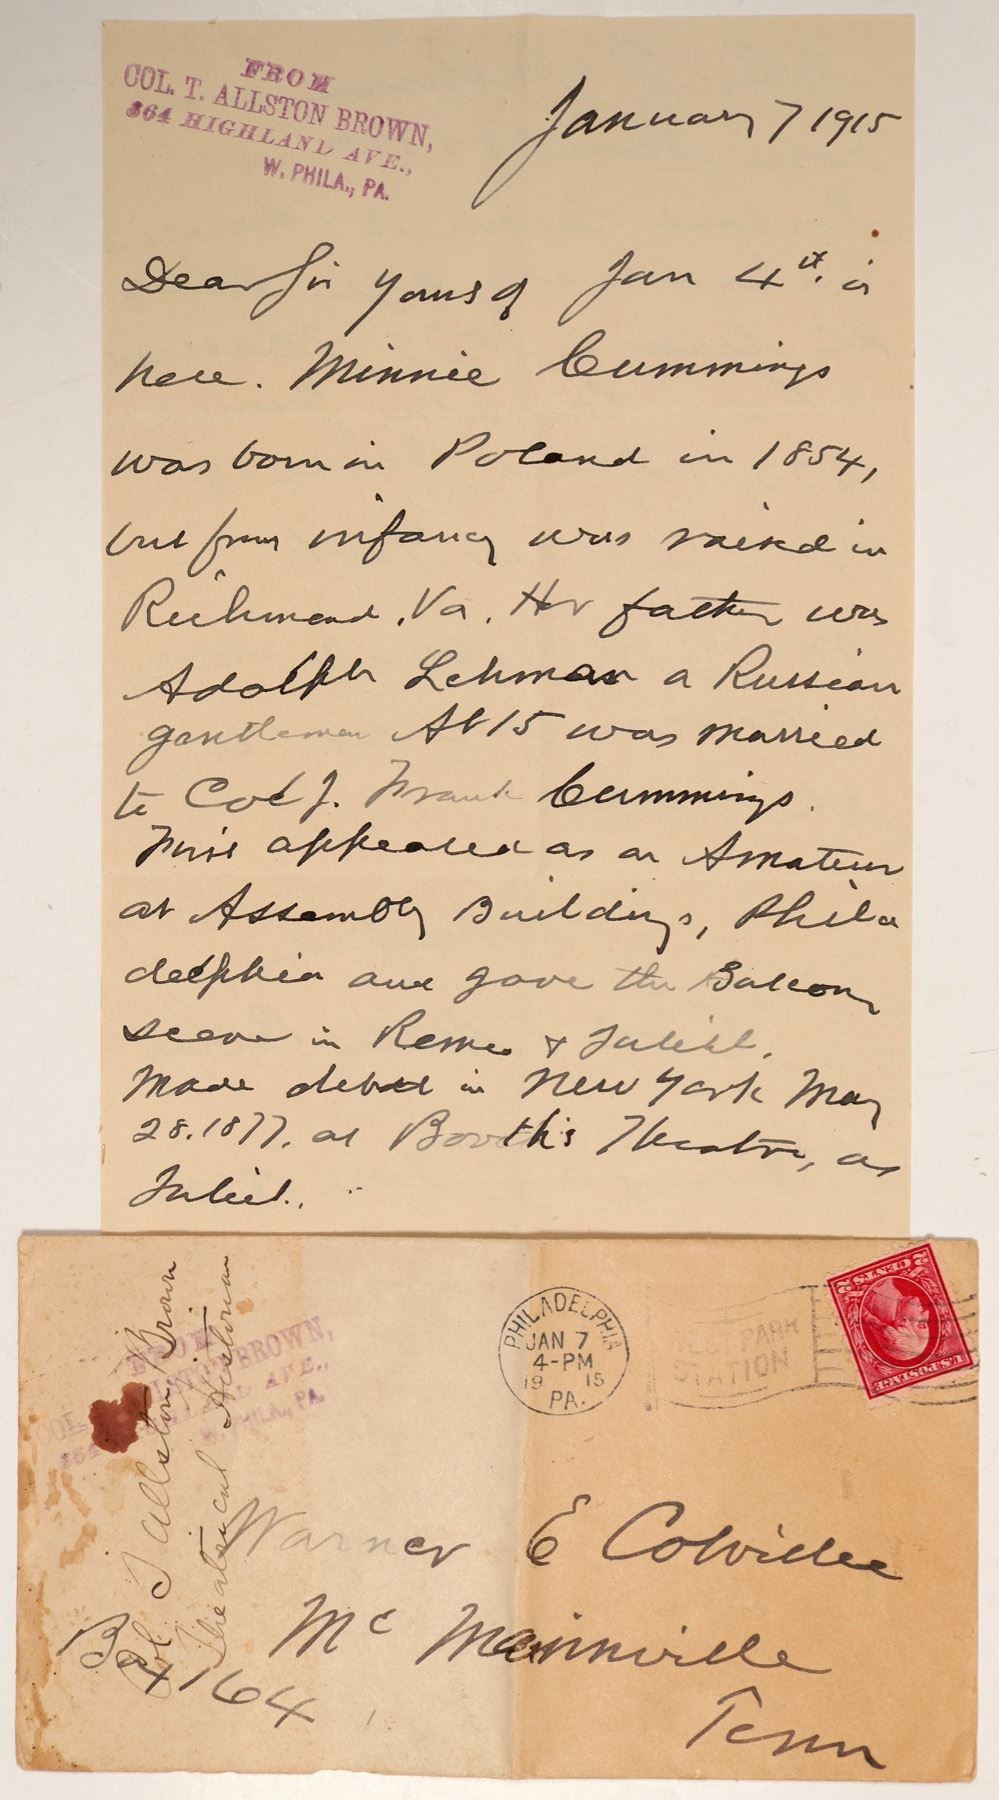 FROM
COL. T. ALLSTON BROWN,
864 HIGHLAND AVE.,
W. PHILA., PA.
January 7 1915
Dear Sir Yours of Jan 4th. is
here. Minnie Cummings
was born in Poland in 1854,
but from infancy was raised in
Richmond, Va. Her father was
Adolph Lehman a Russian
gentleman At 15 was married
to Col J. Frank Cummings.
First appeared as an Amateur
at Assembly Buildings, Phila
delphia and gave the Balcony
scene in Romeo & Juliet.
Made debut in New York May
28.1877. at Booth's Theatre, as
Juliet.
FROM
COL. ALLSTON BROWN,
864 HIGHLAND AVE.,
W. PHILA., PA.
Col. T Allston Brown
Theatrical Historian
PHILADELPHIA
JAN 7
4-PM
19 15
PA.
WEST PARK
STATION
U.S. POSTAGE
2 CENTS 2
Warner E Colville
Mc Minnville
Box 164
Tenn